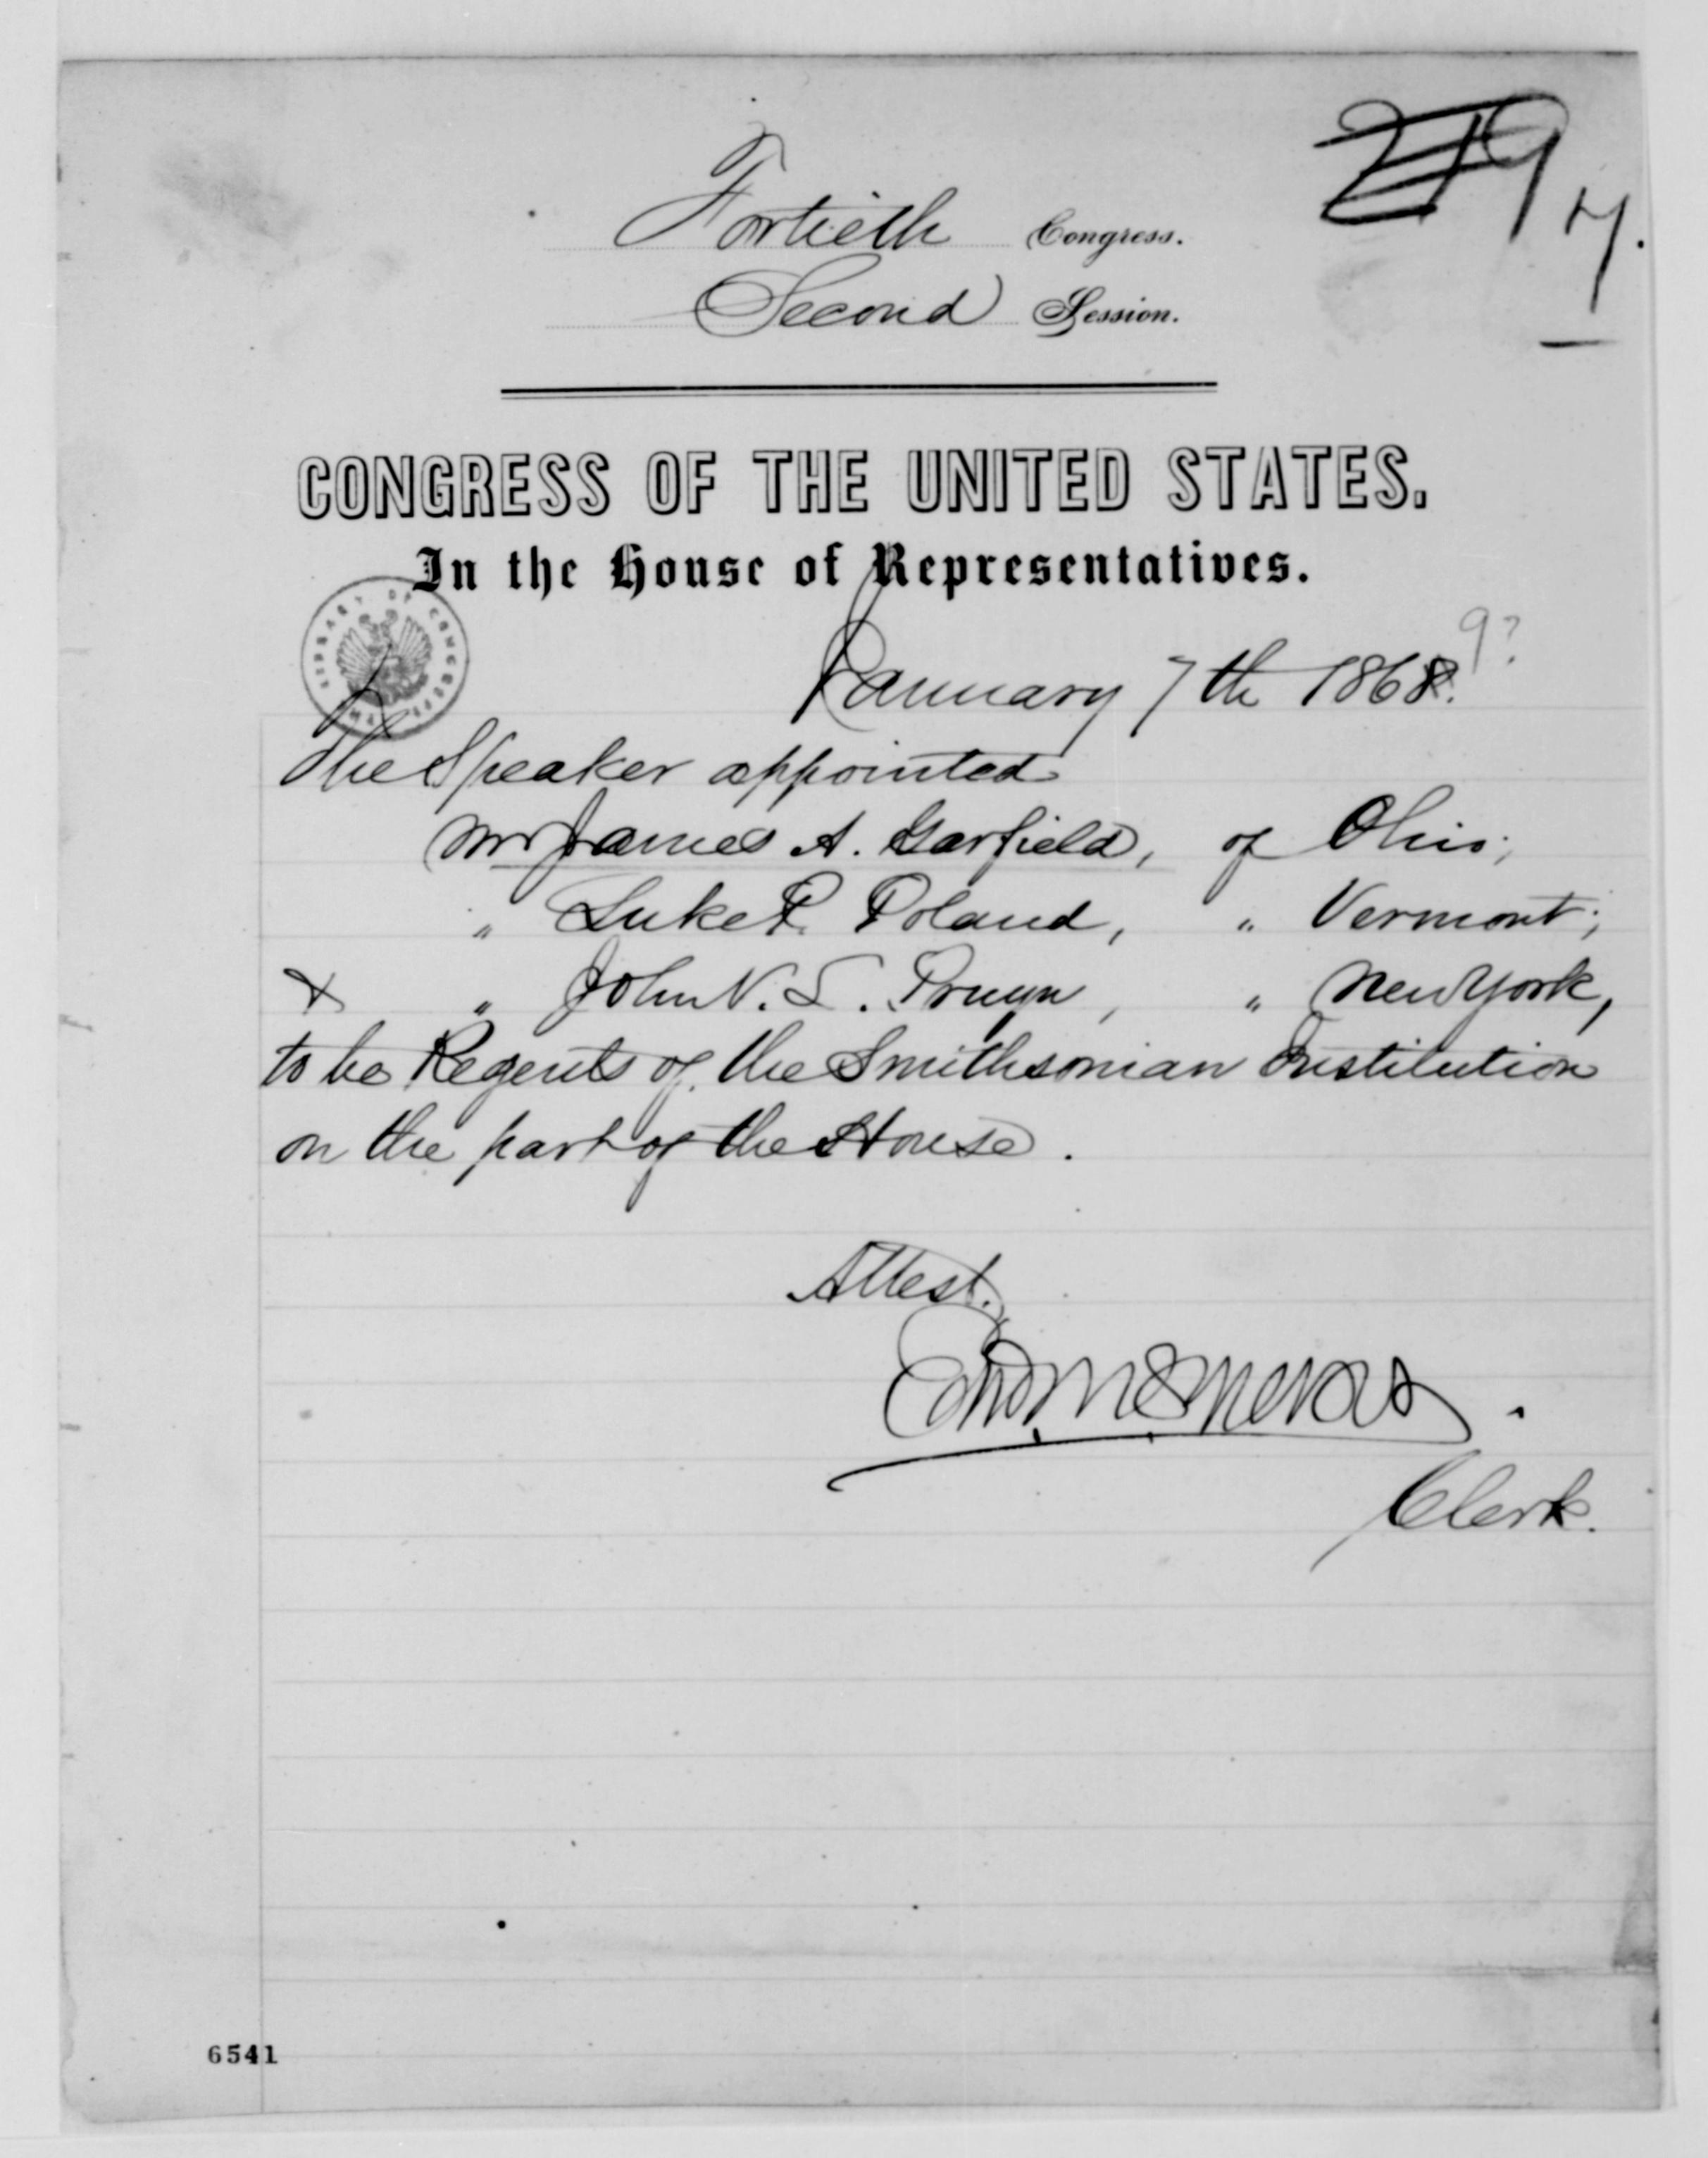 219
7.
Fortieth Congress.
Second Session.
CONGRESS OF THE UNITED STATES.
In the House of Representatives.
LIBRARY OF CONGRESS
9?
January 7th 1868.
The Speaker appointed
Mr James A. Garfield, of Ohio;
" Luke P. Poland, " Vermont;
x " John V. L. Pruyn, " New York,
to be Regents of the Smithsonian Institution
on the part of the House.
Attest.
Edwd McPherson.
Clerk.
6541